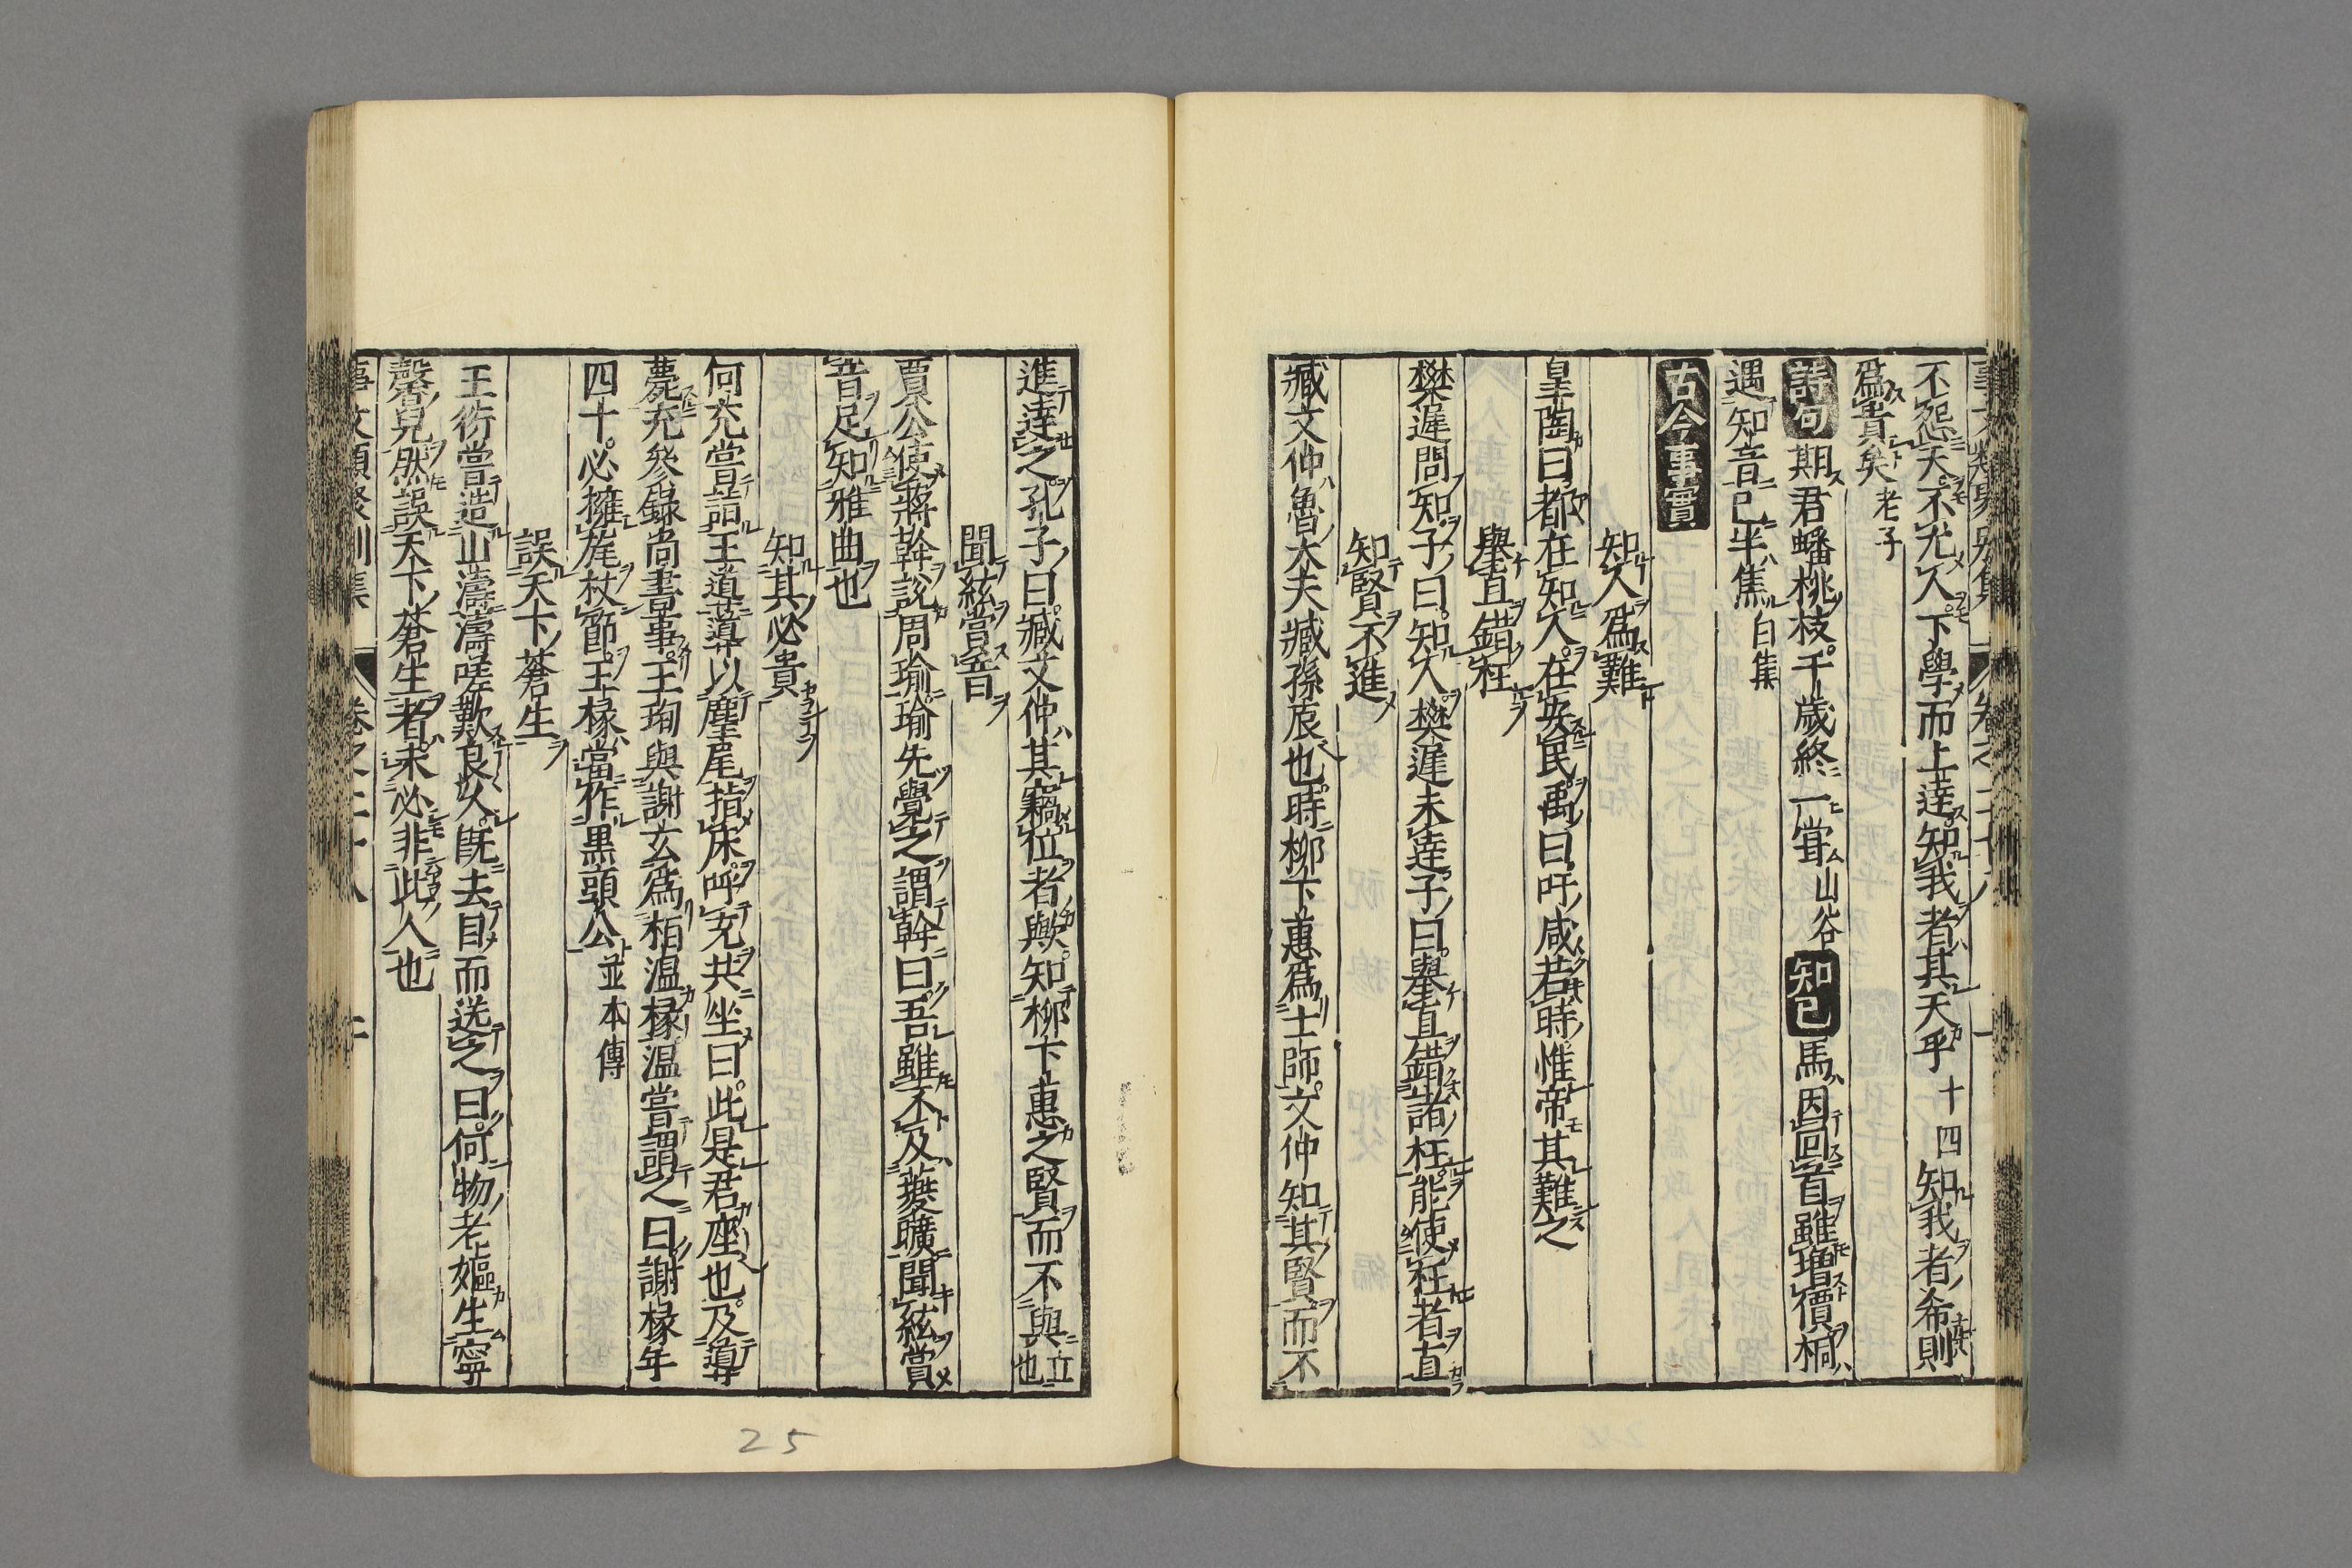 不怨天不尤人下學而上達知我者其天乎十四知我者希則
爲貴矣老子
詩句期君蟠桃枝千歲終一甞山谷知己馬因回首雖增價桐
遇知音已半焦白集
古今事實
知人爲難
皐陶曰都在知人在安民禹曰吁咸若時惟帝其難之
舉直錯枉
樊遲問知子曰知人樊遲未達子曰舉直錯諸枉能使枉者直
知賢不進
臧文仲魯大夫臧孫辰也時柳下惠爲士師文仲知其賢而不
進達之孔子曰臧文仲其竊位者歟知柳下惠之賢而不與立也
聞絃賞音
賈公使蔣幹說周瑜瑜先覺之謂幹曰吾雖不及夔曠聞絃賞
音足知雅曲也
知其必貴
何充嘗詣王道道以麈尾指床呼充共坐曰此是君座也及道
薨充參錄尚書事王珣與謝玄爲桓温掾温嘗謂之曰謝掾年
四十必擁旄杖節王掾當作黑頭公並本傳
誤天下蒼生
王衍嘗造山濤濤嗟歎良久既去目而送之曰何物老嫗生寧
馨兒然誤天下蒼生者未必非此人也
事文類聚別集 卷之二十八
25